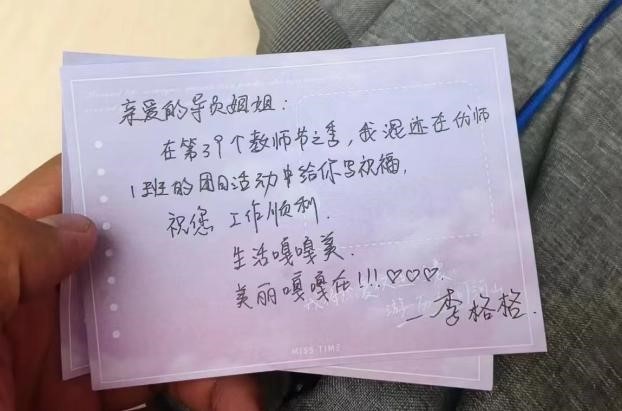 亲爱的导员姐姐：
在第39个教师节之季，我混迹在仿师
1班的团日活动中给你写祝福，
祝您 工作顺利．
生活嘎嘎美．
美丽嘎嘎在!!!♡♡♡．
—李格格．
MISS TIME